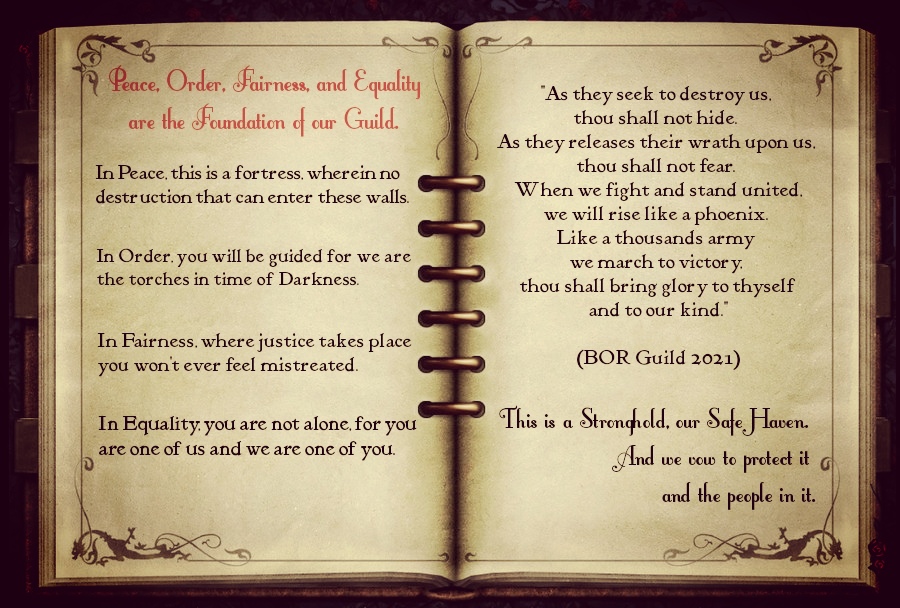 Peace, Order, Fairness, and Equality
are the Foundation of our Guild.
In Peace, this is a fortress, wherein no
destruction that can enter these walls.
In Order, you will be guided for we are
the torches in time of Darkness.
In Fairness, where justice takes place
you won't ever feel mistreated.
In Equality, you are not alone, for you
are one of us and we are one of you.
"As they seek to destroy us,
thou shall not hide.
As they releases their wrath upon us,
thou shall not fear.
When we fight and stand united,
we will rise like a phoenix.
Like a thousands army
we march to victory,
thou shall bring glory to thyself
and to our kind."
(BOR Guild 2021)
This is a Stronghold, our Safe Haven.
And we vow to protect it
and the people in it.